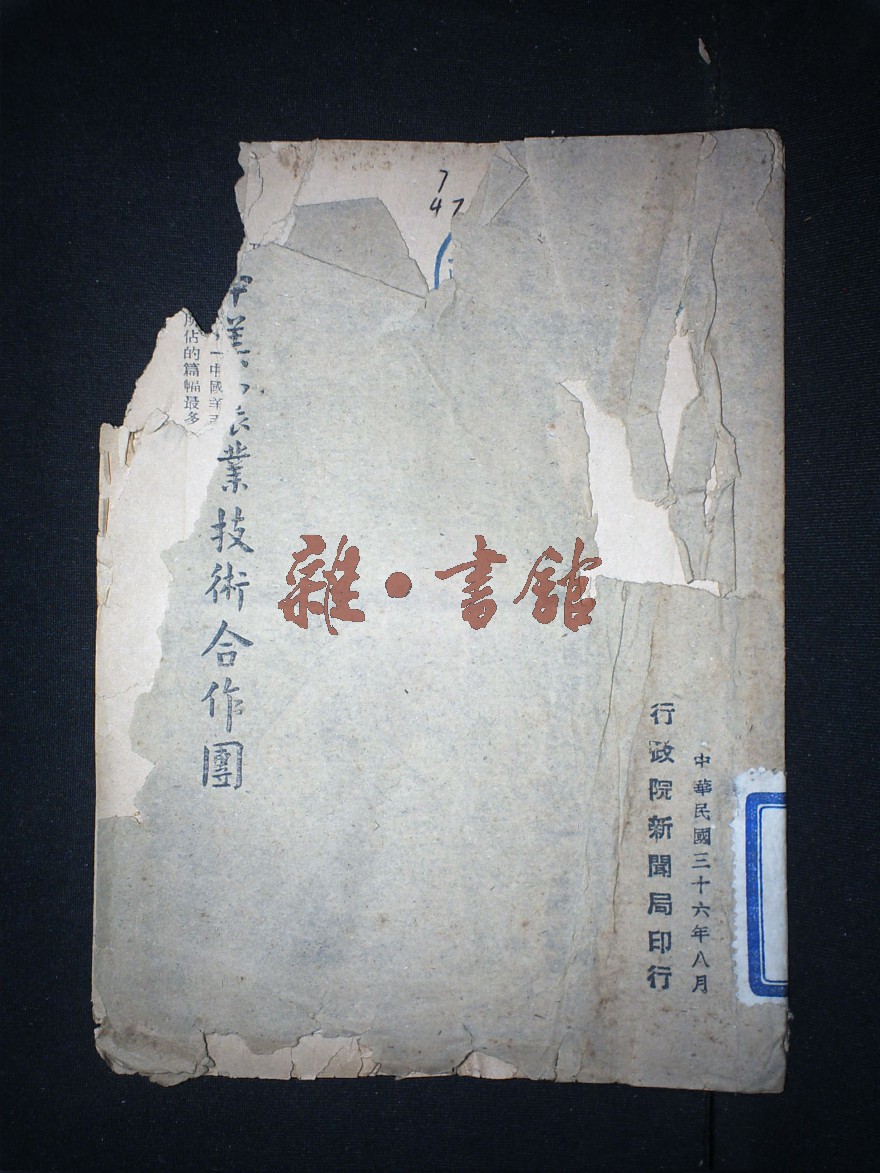 7
47
中華民國三十六年八月
行政院新聞局印行
中美農業技術合作團
一中國
所佔的篇幅最多
雜·書館